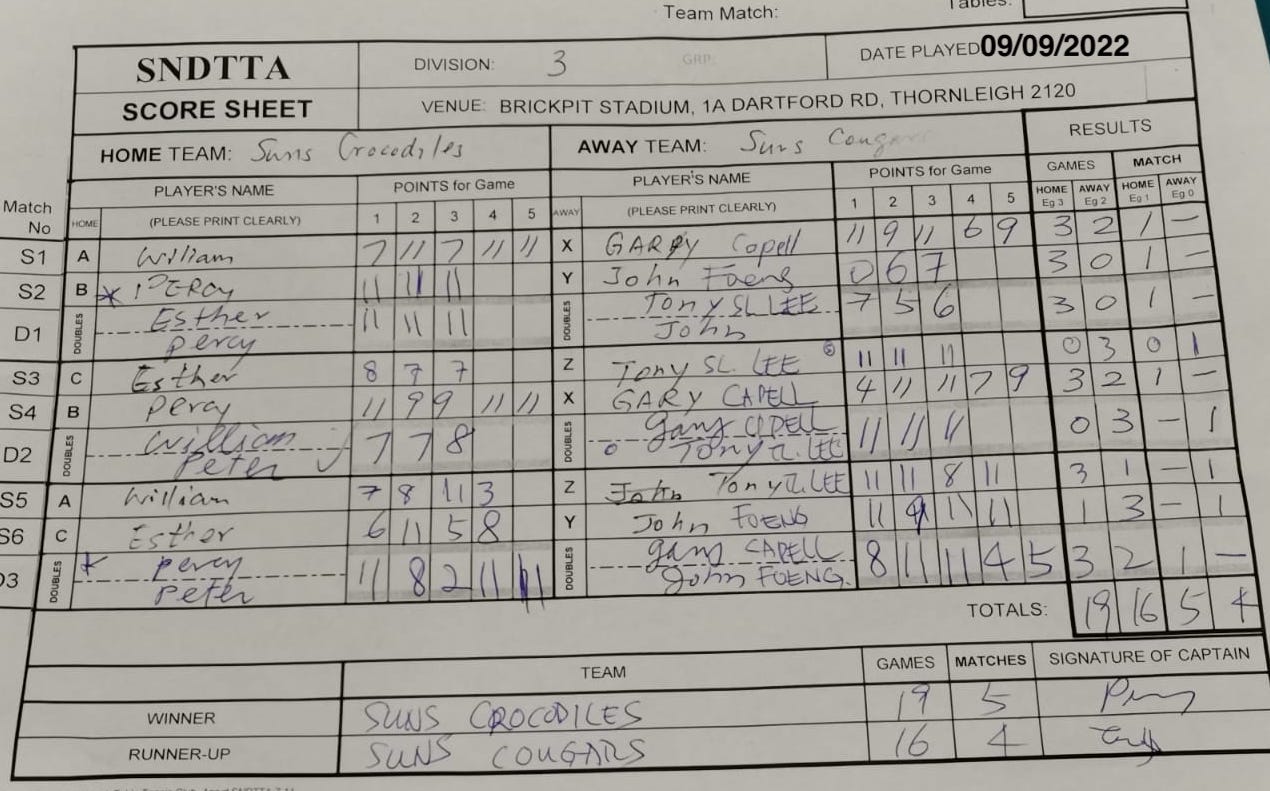 Team Match:
Tables:
SNDTTA DIVISION: 3 GRP: DATE PLAYED 09/09/2022
SCORE SHEET VENUE: BRICKPIT STADIUM, 1A DARTFORD RD, THORNLEIGH 2120
HOME TEAM: Suns Crocodiles AWAY TEAM: Suns Cougars RESULTS
PLAYER'S NAME POINTS for Game PLAYER'S NAME POINTS for Game GAMES MATCH
Match No HOME (PLEASE PRINT CLEARLY) 1 2 3 4 5 AWAY (PLEASE PRINT CLEARLY) 1 2 3 4 5 HOME Eg 3 AWAY Eg 2 HOME Eg 1 AWAY Eg 0
S1 A William 7 11 7 11 11 X GARRY Capell 11 9 11 6 9 3 2 1 -
S2 B * PERCY 11 11 11 Y John Foeng 0 6 7 3 0 1 -
D1 DOUBLES Esther 11 11 11 DOUBLES Tony SL LEE 7 5 6 3 0 1 -
percy John
S3 C Esther 8 7 7 Z Tony SL. LEE 11 11 11 0 3 0 1
S4 B percy 11 9 9 11 11 X GARY CAPELL 4 11 11 7 9 3 2 1 -
D2 DOUBLES William 7 7 8 DOUBLES gary CAPELL 11 11 11 0 3 - 1
Peter Tony LEE
S5 A William 7 8 11 3 Z John Tony LEE 11 11 8 11 3 1 - 1
S6 C Esther 6 11 5 8 Y John FOENG 11 9 11 11 1 3 - 1
D3 DOUBLES * percy 11 8 2 11 11 DOUBLES gary CAPELL 8 11 11 4 5 3 2 1 -
Peter John FOENG.
TOTALS: 19 16 5 4
TEAM GAMES MATCHES SIGNATURE OF CAPTAIN
WINNER SUNS CROCODILES 19 5
RUNNER-UP SUNS COUGARS 16 4